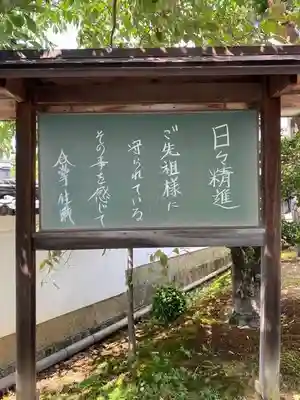 日々精進
ご先祖様に
守られている
その事を感じて
合掌